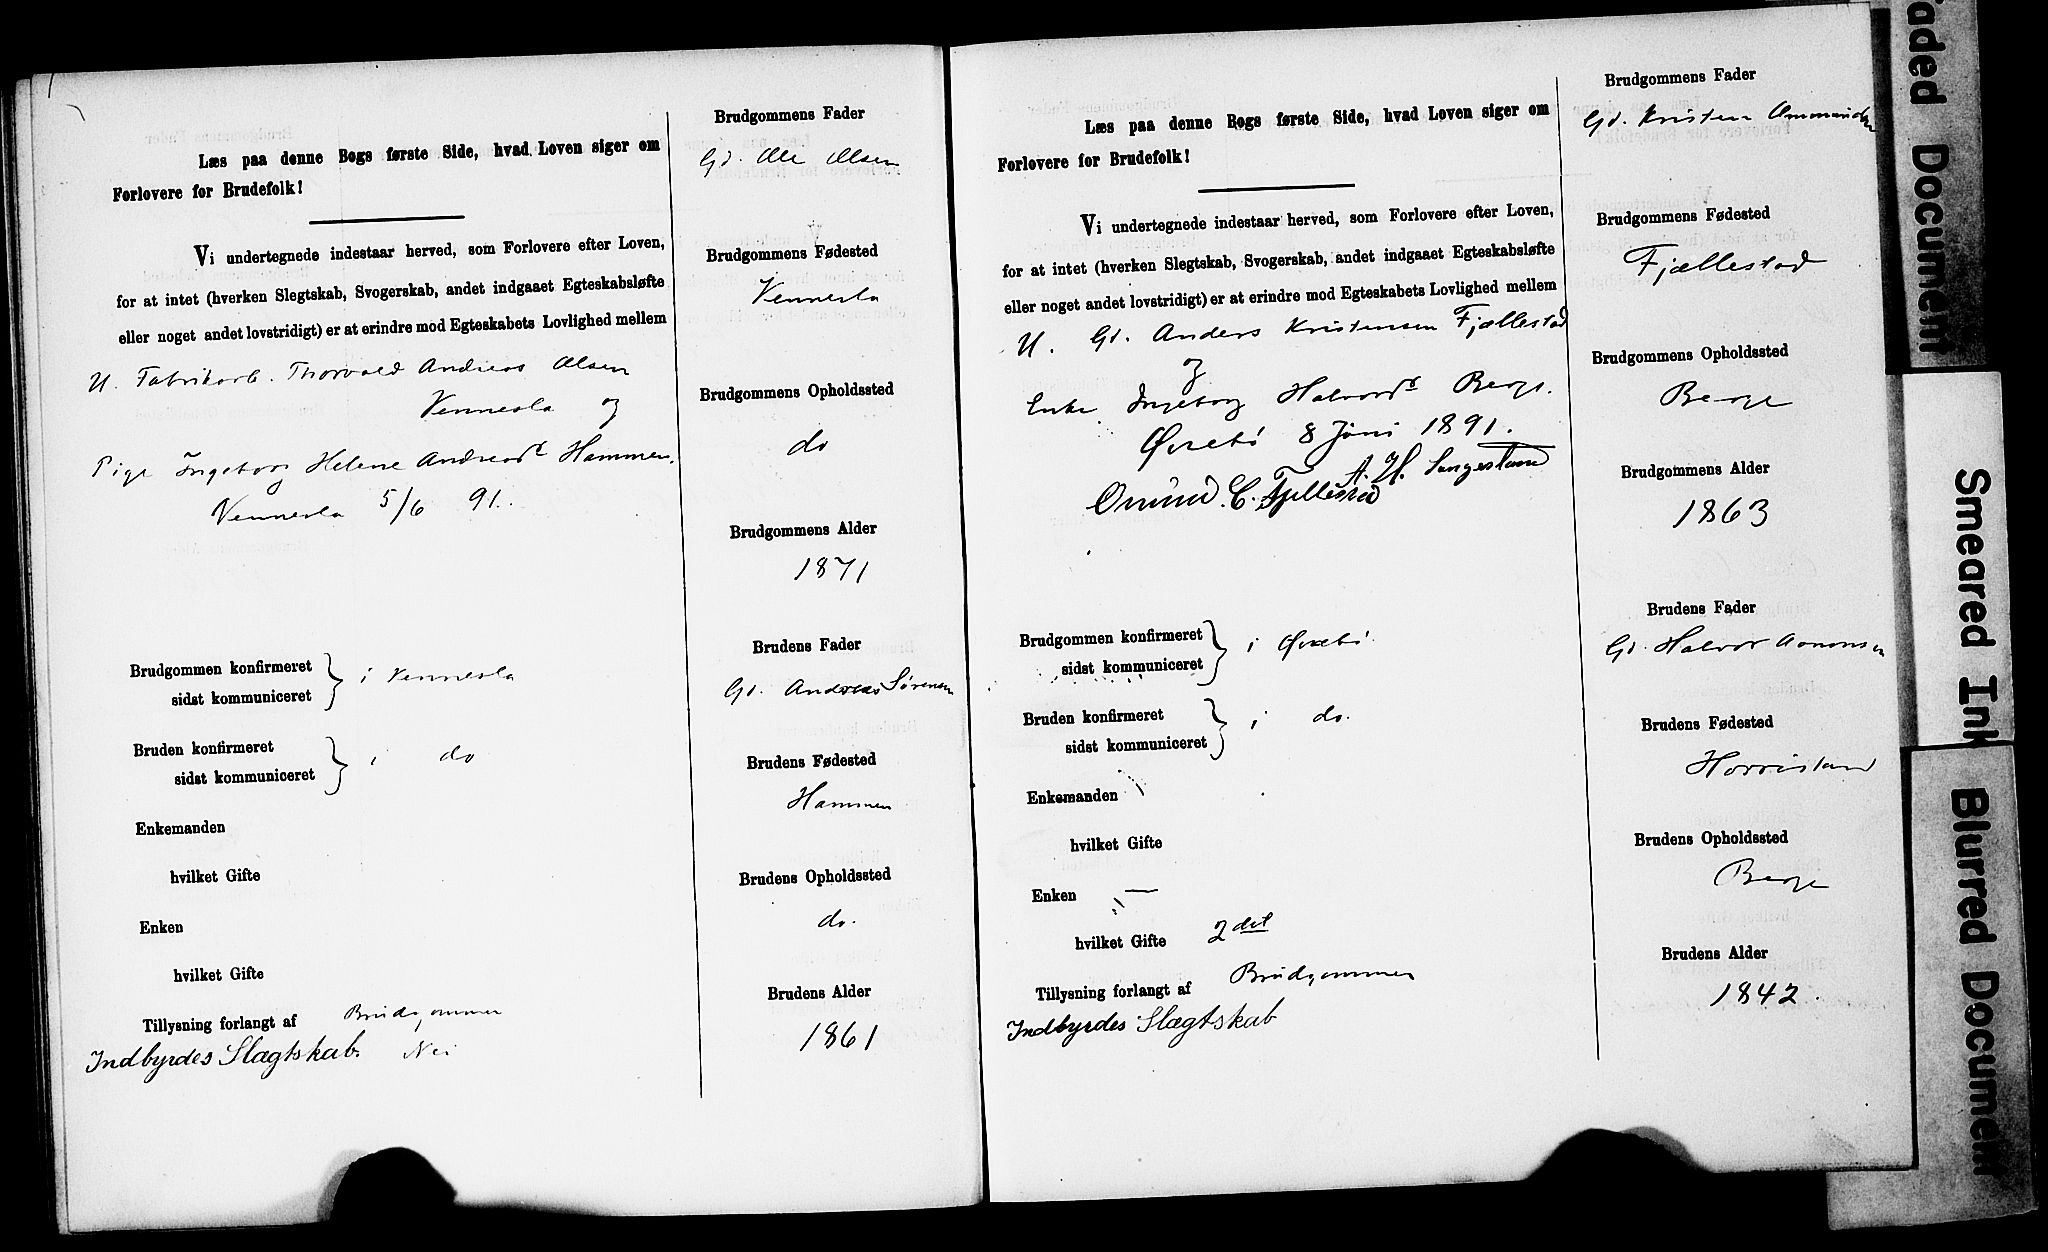 Læs paa denne Bogs første Side, hvad Loven siger om
Forlovere for Brudefolk!
Vi undertegnede indestaar herved, som Forlovere efter Loven,
for at intet (hverken Slegtskab, Svogerskab, andet indgaaet Egteskabsløfte
eller noget andet lovstridigt) er at erindre mod Egteskabets Lovlighed mellem
U. Fabrikarb. Thorvald Andreas Olsen
Vennesla og
Pige Ingeborg Helene Andreasd Hammen.
Vennesla 5/6 91.
Brudgommen konfirmeret
sidst kommuniceret
i Vennesla
Bruden konfirmeret
sidst kommuniceret
i do
Enkemanden
hvilket Gifte
Enken
hvilket Gifte
Tillysning forlangt af Brudgommen
Indbyrdes Slægtskab. Nei
Brudgommens Fader
Gd. Ole Olsen
Brudgommens Fødested
Vennesla
Brudgommens Opholdssted
do
Brudgommens Alder
1871
Brudens Fader
Gd. Andreas Sørensen
Brudens Fødested
Hammen
Brudens Opholdssted
do.
Brudens Alder
1861
Læs paa denne Bogs første Side, hvad Loven siger om
Forlovere for Brudefolk!
Vi undertegnede indestaar herved, som Forlovere efter Loven,
for at intet (hverken Slegtskab, Svogerskab, andet indgaaet Egteskabsløfte
eller noget andet lovstridigt) er at erindre mod Egteskabets Lovlighed mellem
U. Gd. Anders Kristensen Fjællestad
og
Enke Ingeborg Halvords Berge.
Øvrebø 8 Juni 1891.
A. H. Langeland
Omund C. Fjellestad
Brudgommen konfirmeret
sidst kommuniceret
i Øvrebø
Bruden konfirmeret
sidst kommuniceret
i do.
Enkemanden
hvilket Gifte
Enken —
hvilket Gifte 2det
Tillysning forlangt af Brudgommen
Indbyrdes Slægtskab
Brudgommens Fader
Gd. Kristen Ommundsen
Brudgommens Fødested
Fjællestad
Brudgommens Opholdssted
Berge
Brudgommens Alder
1863
Brudens Fader
Gd. Halvor Aanonsen
Brudens Fødested
Horrisland
Brudens Opholdssted
Berge
Brudens Alder
1842.
aded Document
Smeared Ink
Blurred Document